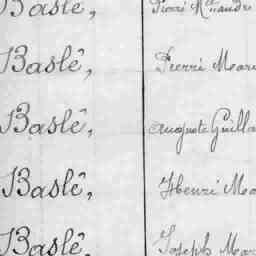 Baslê, Pierre
Baslê, Pierri Mari
Baslê, Auguste Guilla
Baslê, Henri Ma
Baslê, Joseph Mar